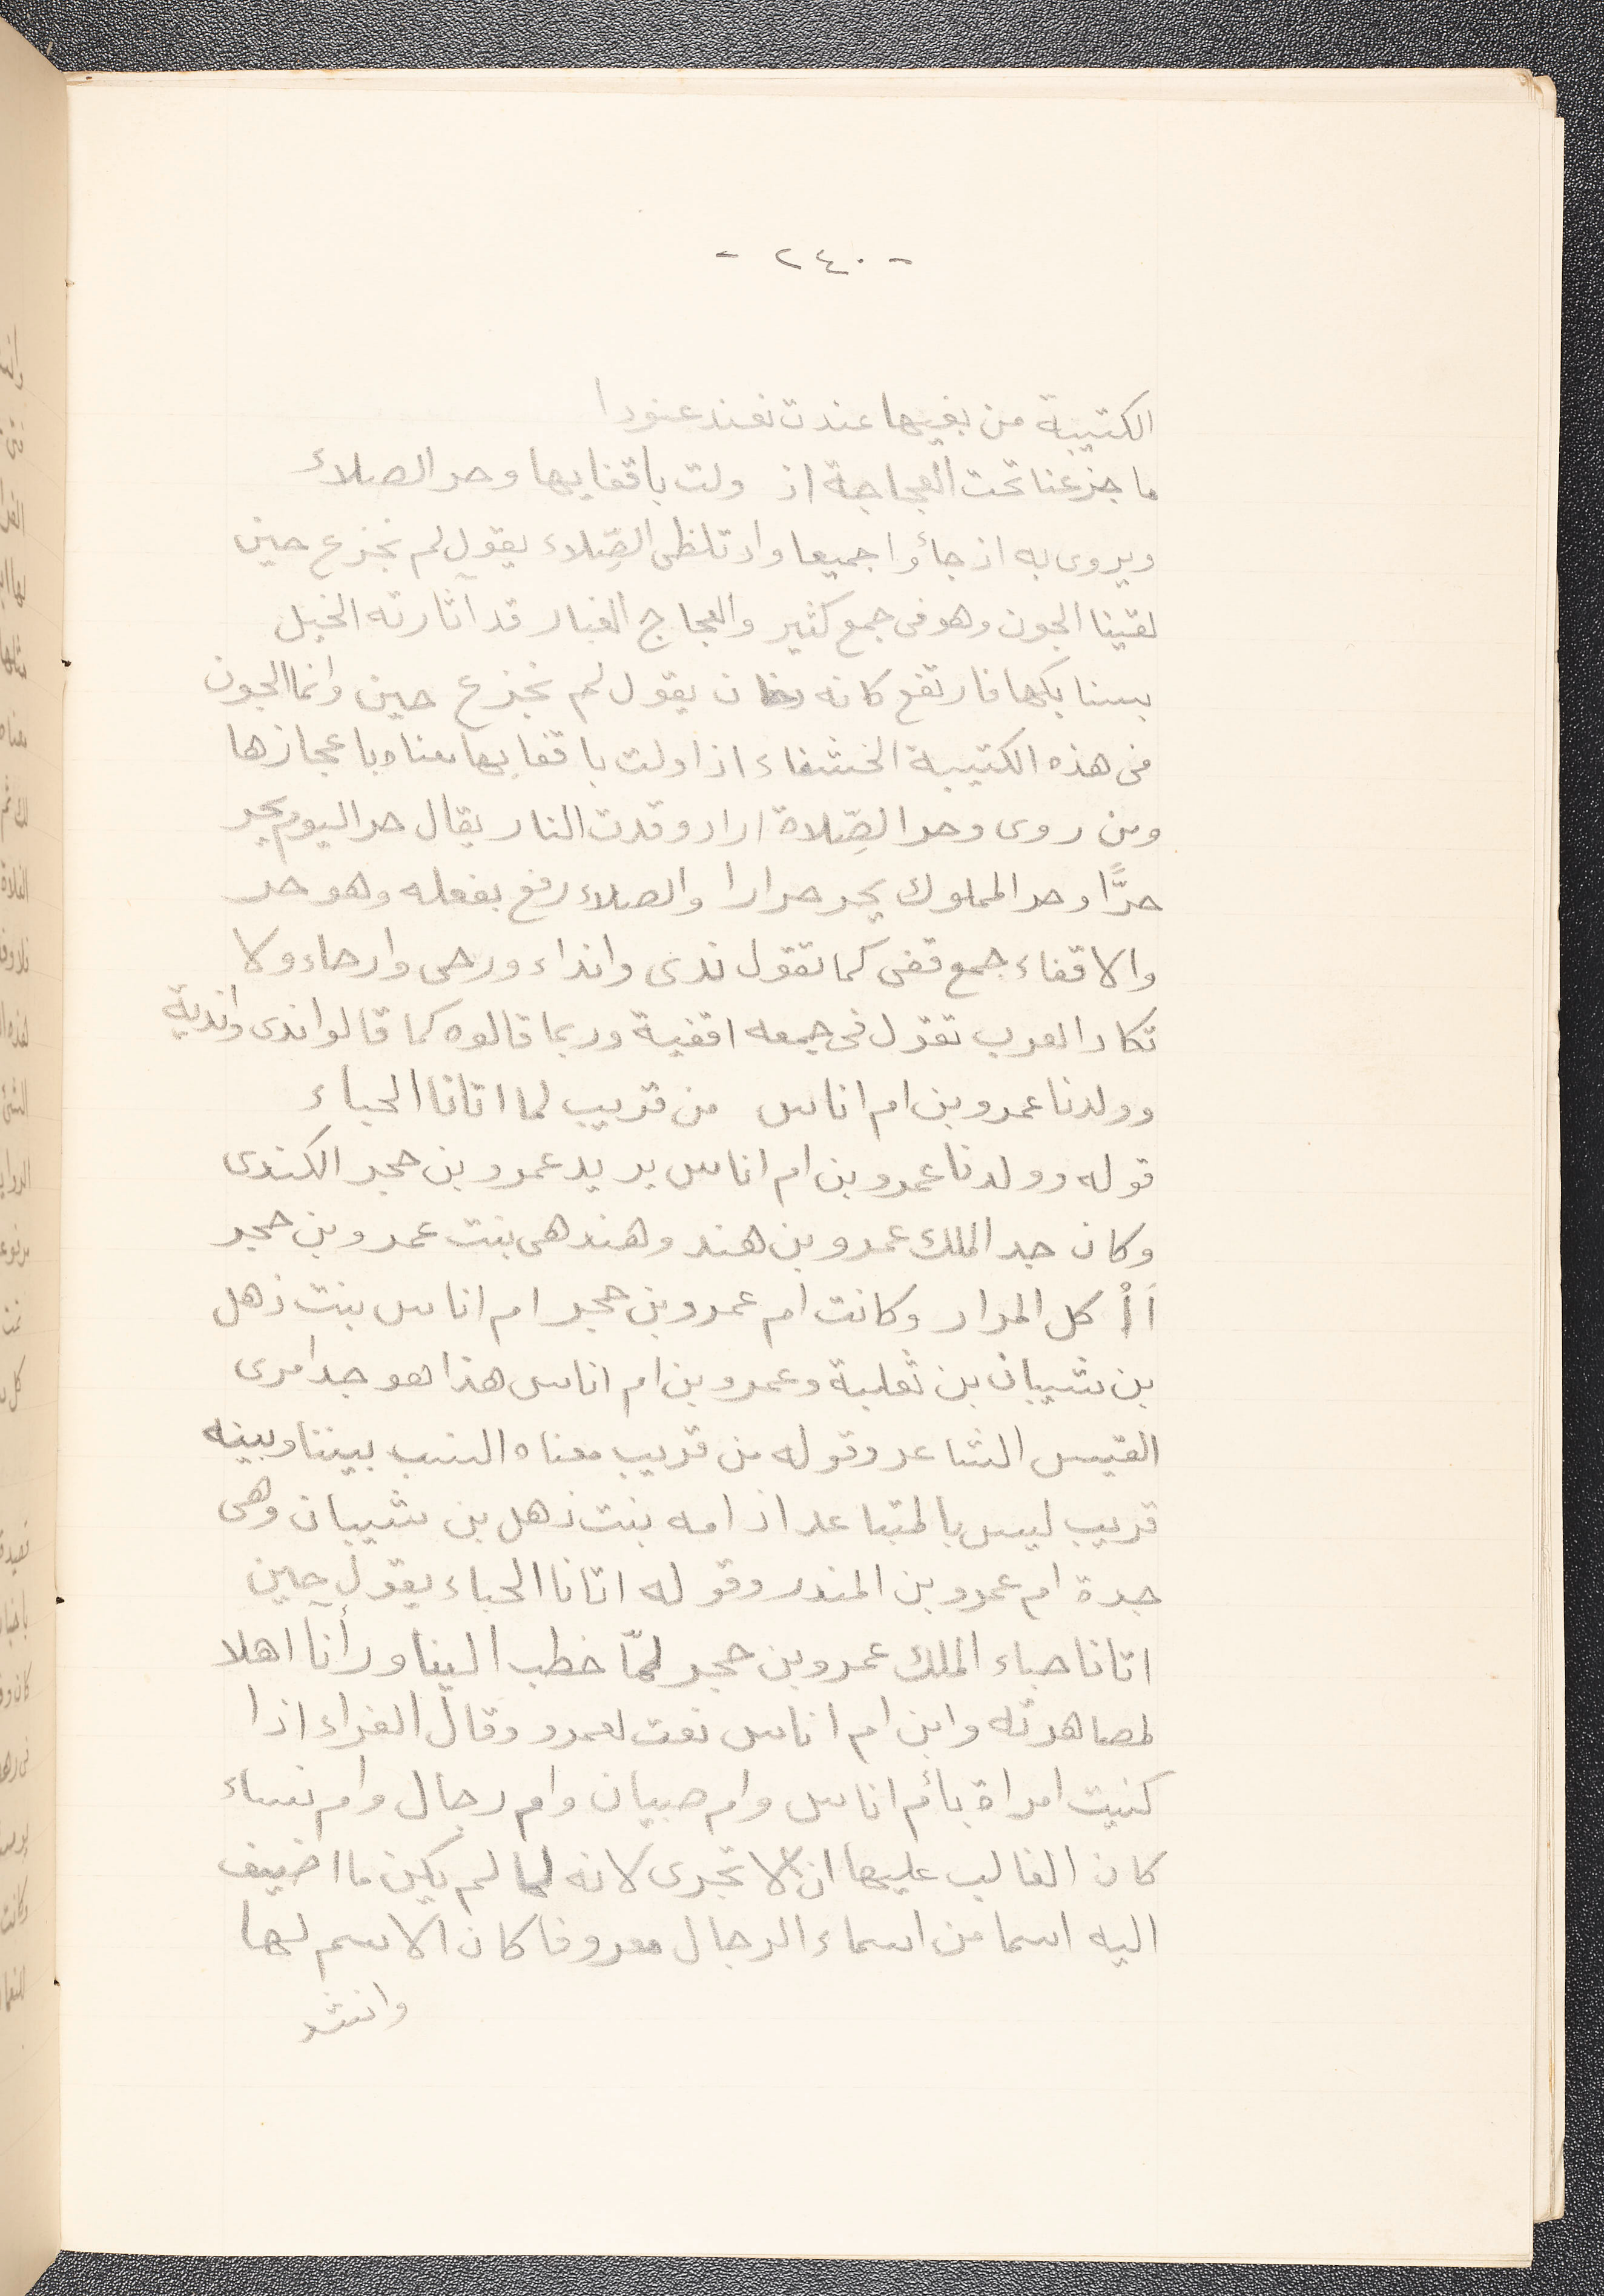 - ٢٤٠ -
الكتيبة من بغيها عندت تعند عنودا
ما جزعنا تحت العجاجة اذ ولت باقفايها وحر الصلاء
ويروى به اذ جاؤا جميعا واذ تلظى الصِّلاء يقول لم نجزع حين
لقينا الجون وهو فى جمع كثير والعجاج الغبار قد اثارته الخيل
بسنابكها فارتفع كانه دخان يقول لم نجزع حين وانما الجون
فى هذه الكتيبة الخشفاء اذا ولت باقفايها معناه باعجازها
ومن روى وحر الصِّلاة اراد وقدت النار يقال حر اليوم يحر
حرًّا وحر المملوك يحر حرارا والصلاء رفع بفعله وهو حر
والاقفاء جمع قفى كما تقول ندى وانداء ورحى وارحاء ولا
تكاد العرب تقول فى جمعه اقفية وربما قالوه كما قالوا ندى واندية
وولدنا عمرو بن ام اناس من قريب لما اتانا الحباء
قوله وولدنا عمرو بن ام اناس يريد عمرو بن حجر الكندى
وكان جد الملك عمرو بن هند وهند هى بنت عمرو بن حجر
اَاْ كل المرار وكانت ام عمرو بن حجر ام اناس بنت ذهل
بن شيبان بن ثعلبة وعمرو بن ام اناس هذا هو جد امرى
القيس الشاعر وقوله من قريب معناه النسب بيننا وبينه
قريب ليس بالمتباعد اذ امه بنت ذهل بن شيبان وهى
جدة ام عمرو بن المنذر وقوله اتانا الحباء يقول حين
اتانا حباء الملك عمرو بن حجر لمّا خطب الينا ورأنا اهلا
لمصاهرته وابن ام اناس نعت لعمرو وقال الفراء اذا
كنيت امراة بأم اناس وام صبيان وام رجال وام نساء
كان الغالب عليها ان لا تجرى لانه لما لم يكن ما اضيف
اليه اسما من اسماء الرجال معروفا كان الاسم لها
وانشد